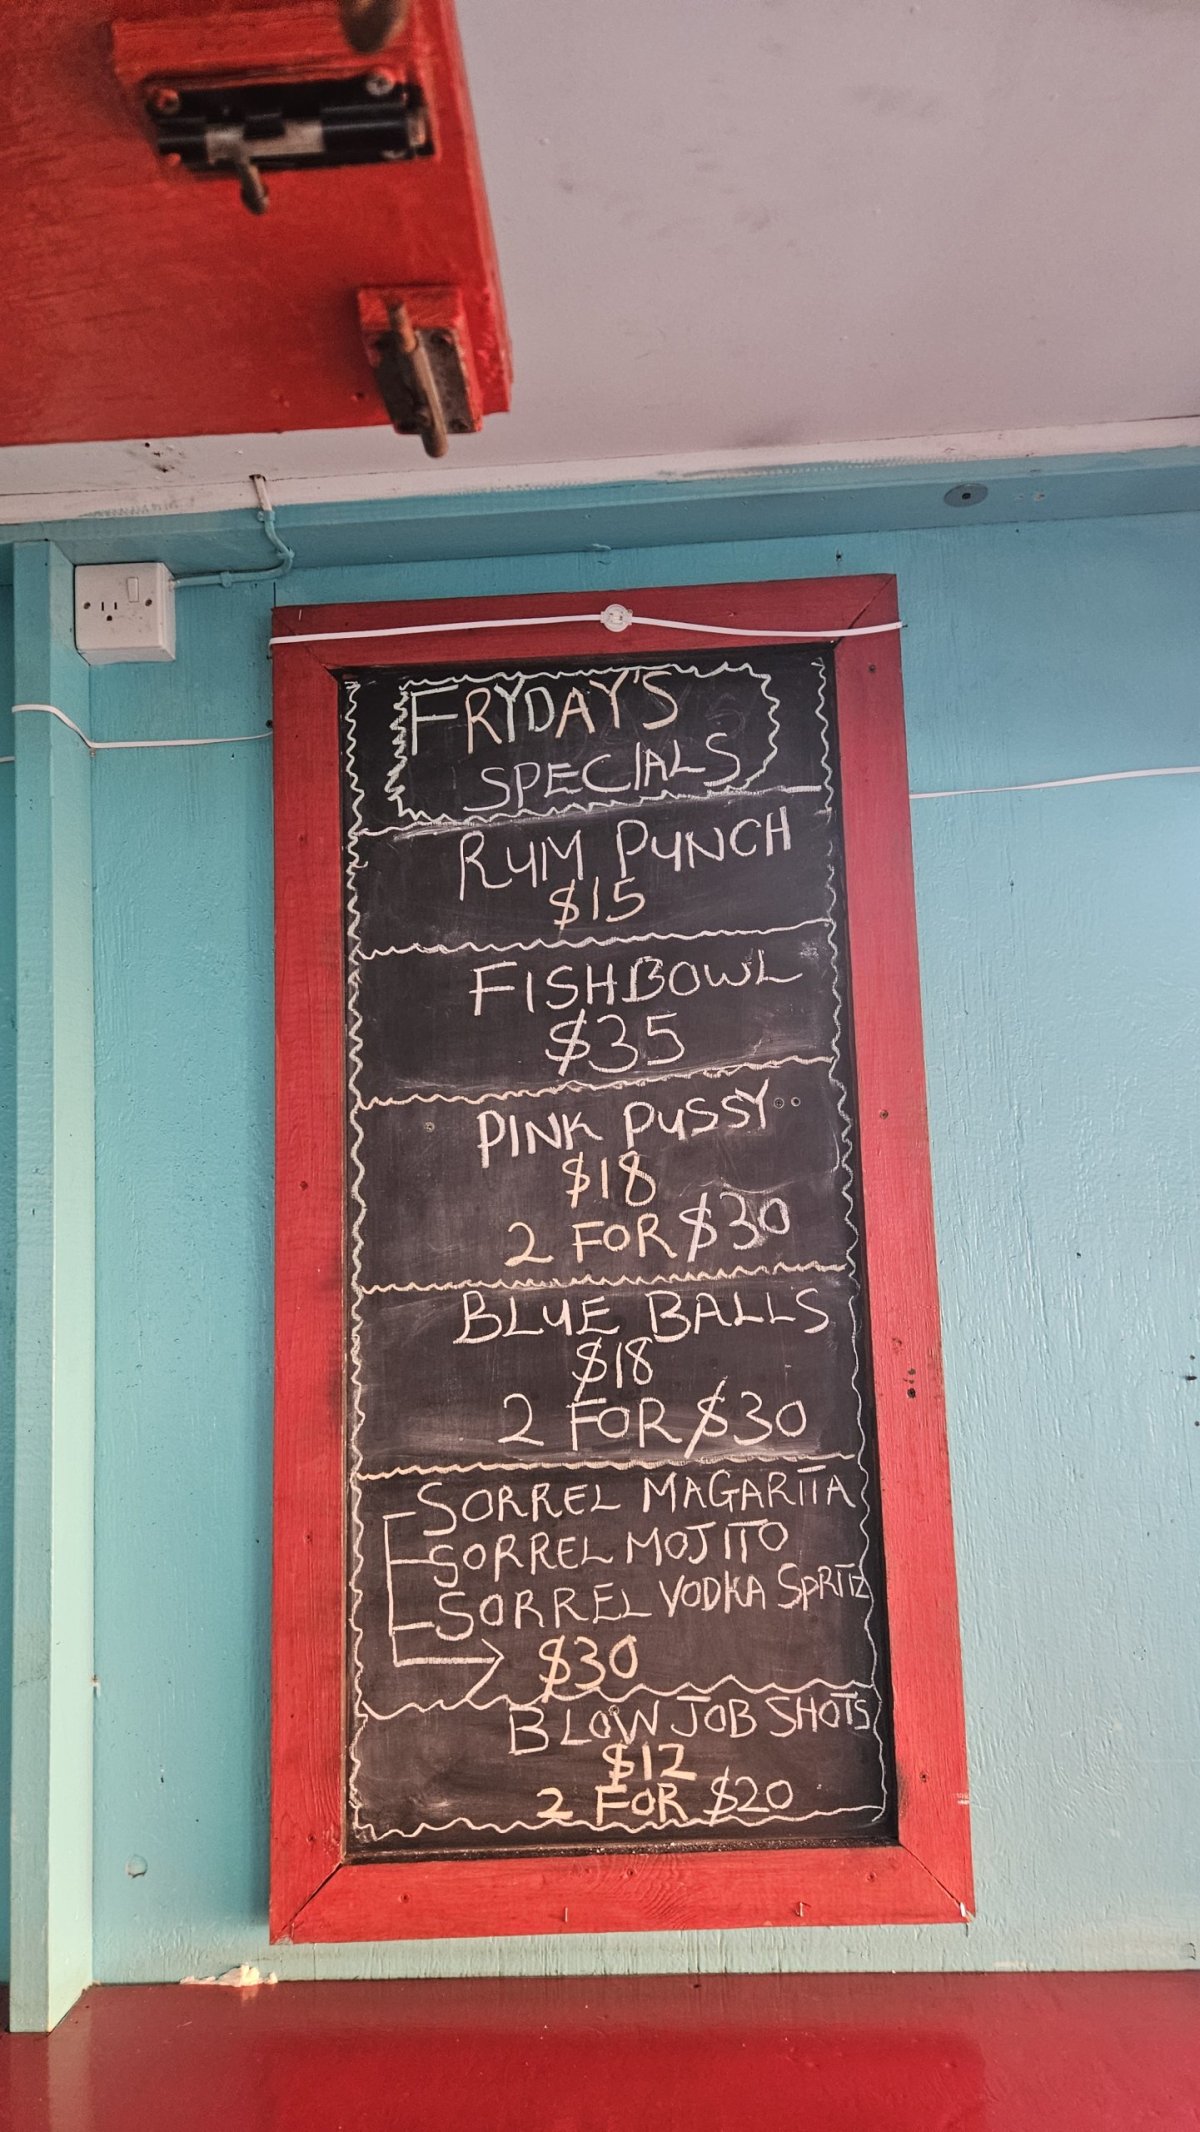 FRYDAY'S
SPECIALS
RUM PUNCH
$15
FISHBOWL
$35
PINK PUSSY
$18
2 FOR $30
BLUE BALLS
$18
2 FOR $30
SORREL MAGARITA
SORREL MOJITO
SORREL VODKA SPRITZ
$30
BLOW JOB SHOTS
$12
2 FOR $20